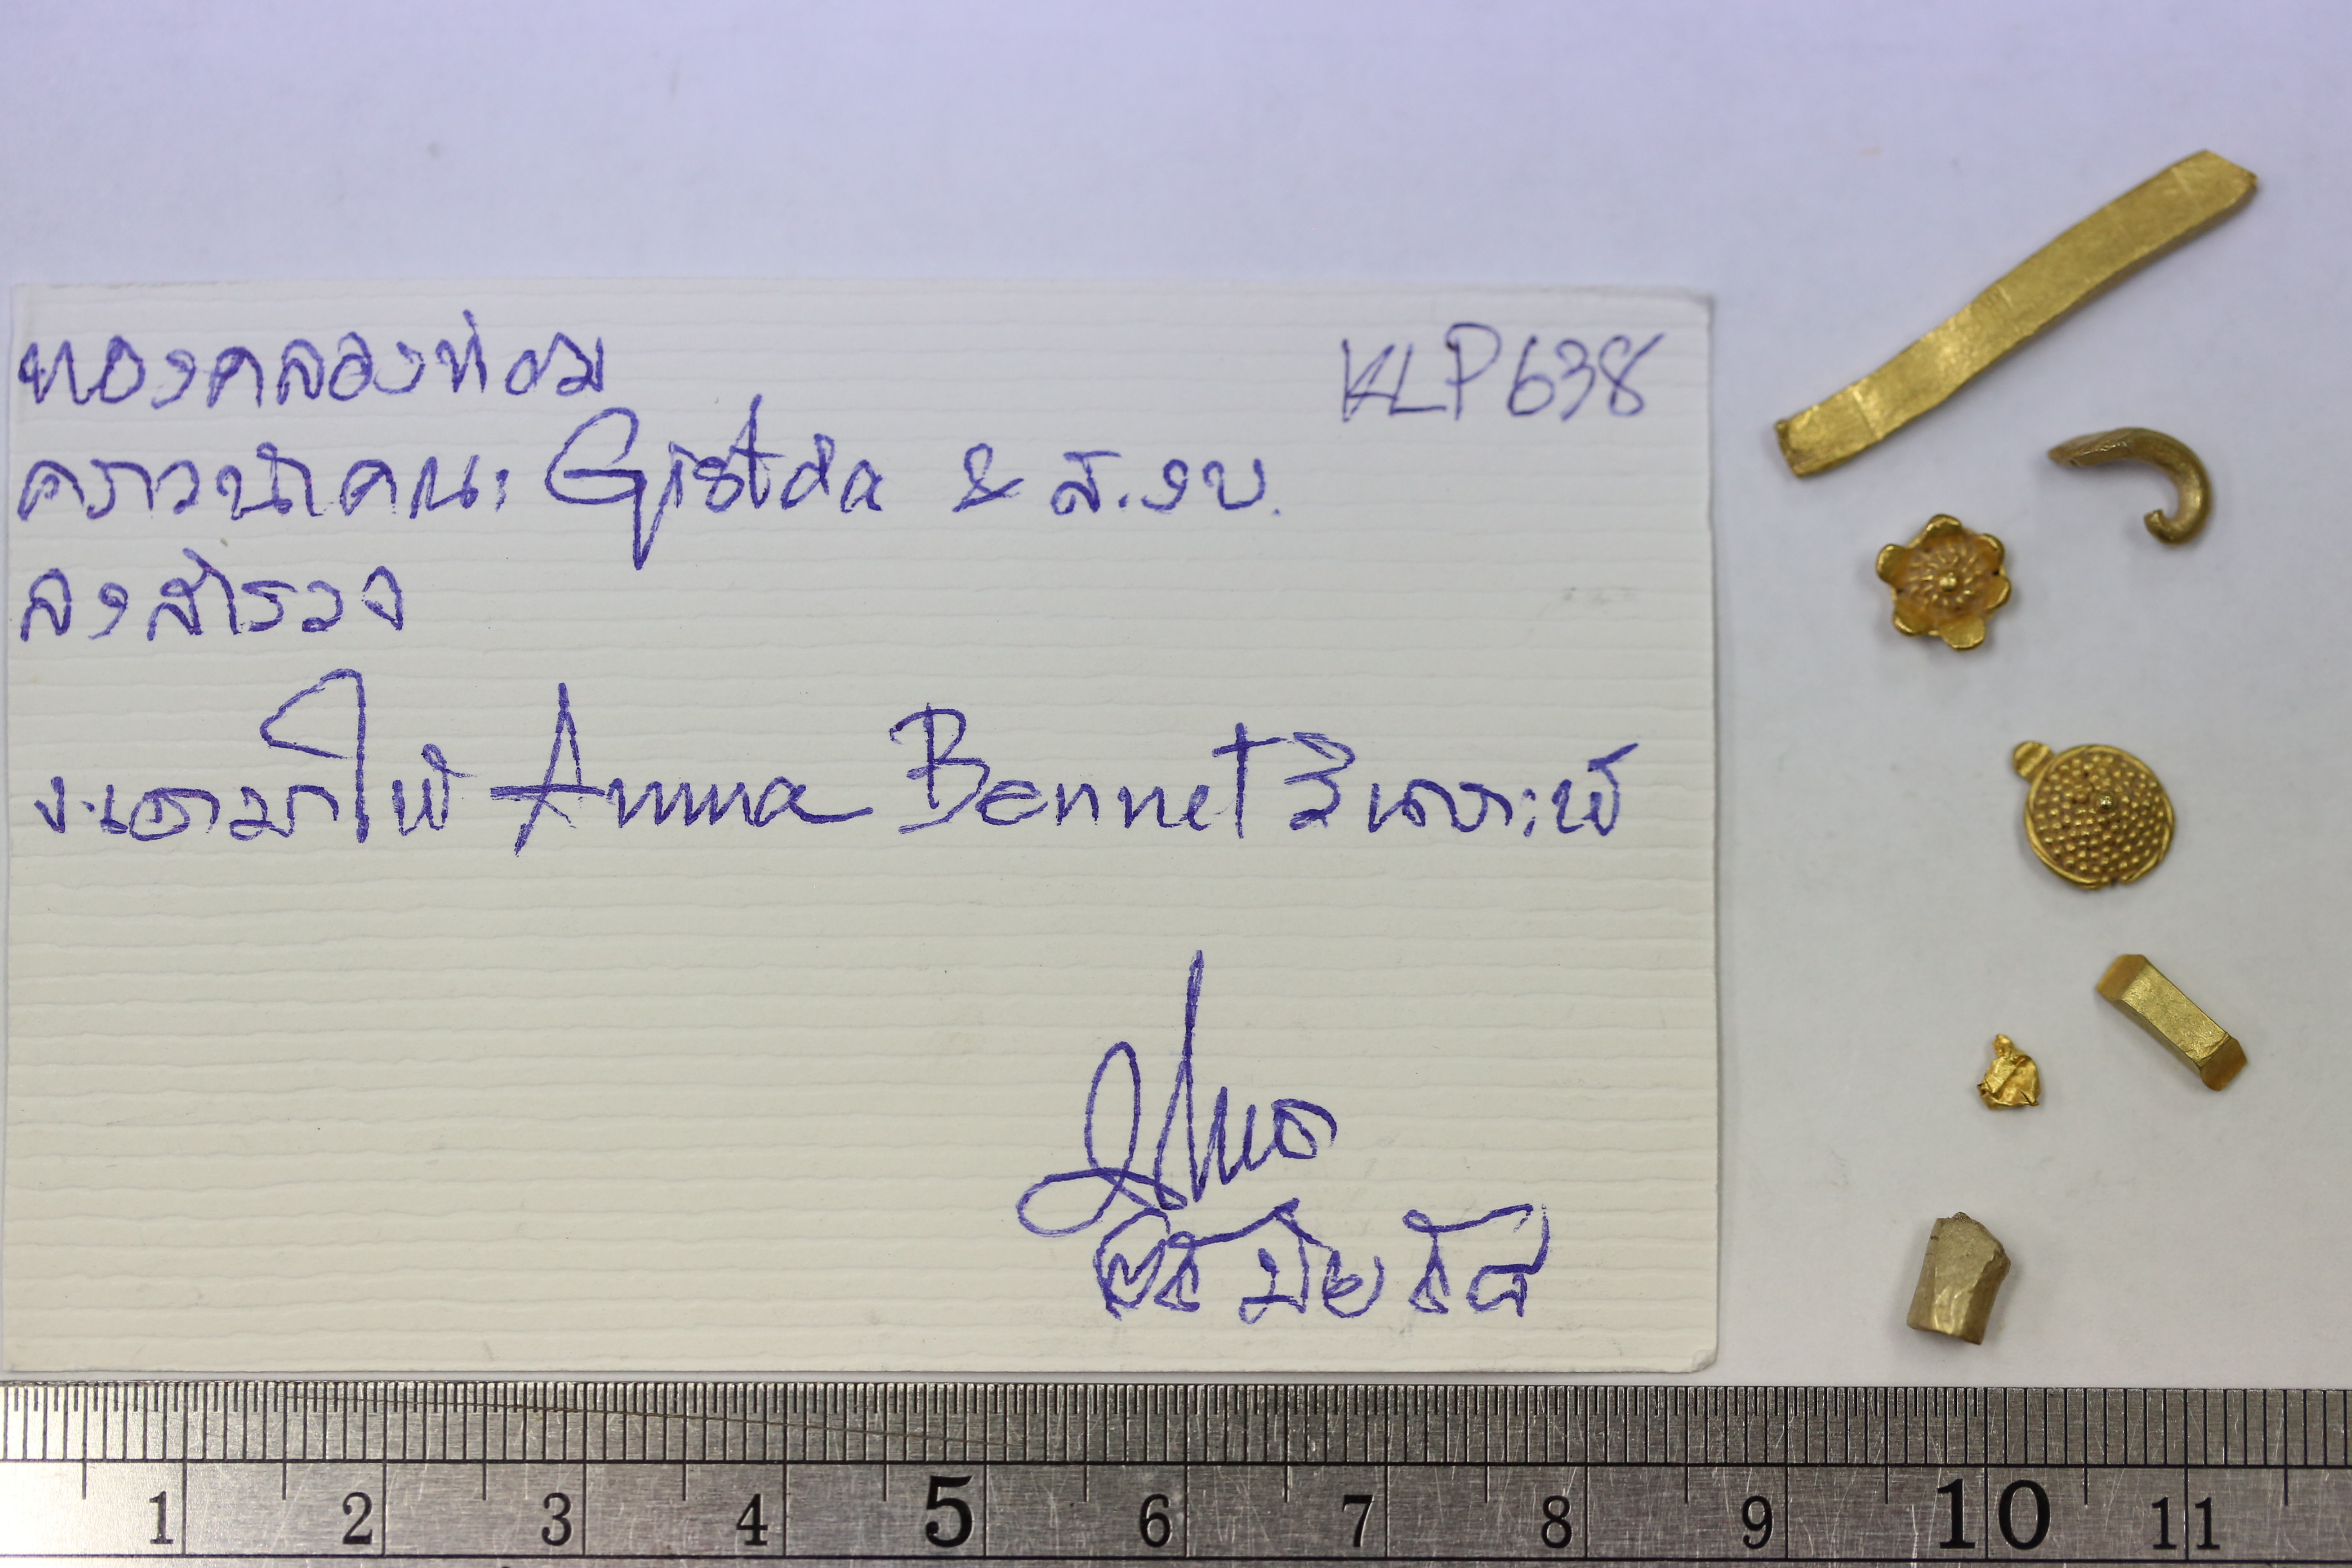 ทองคลองท่อม KLP638
คราวนำคณะ Gistda & ส.งบ.
ลงสำรวจ
จะเอามาให้ Anna Bennet วิเคราะห์
1 2 3 4 5 6 7 8 9 10 11